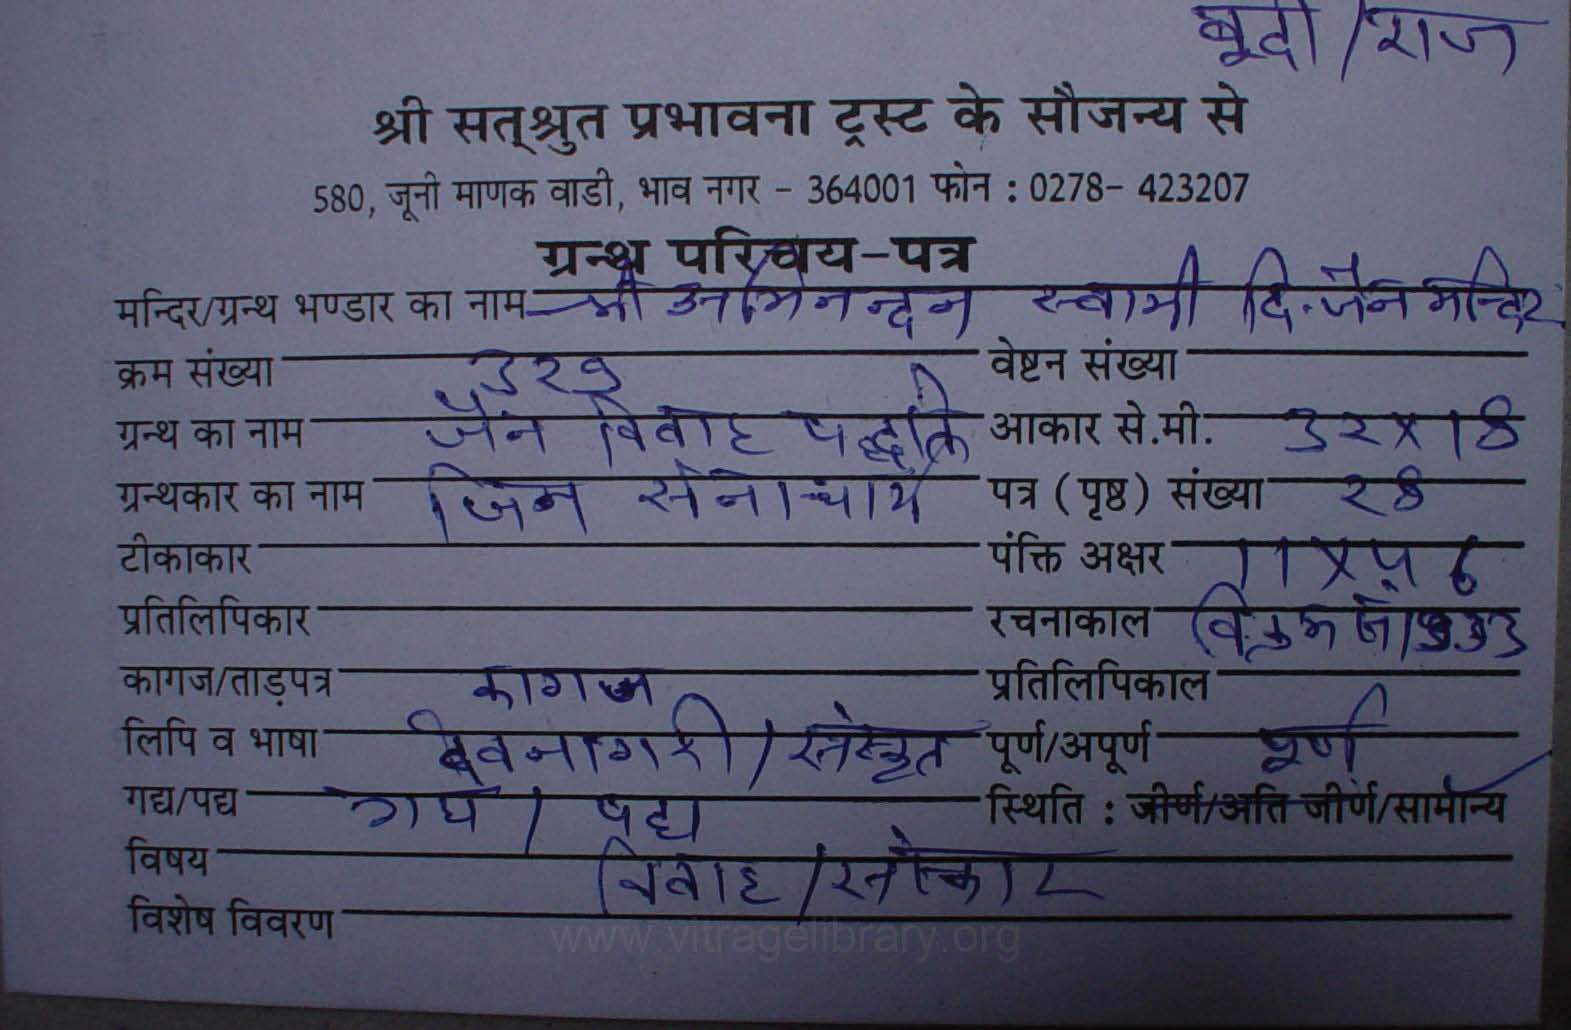 बूंदी / राज
श्री सत्‌श्रुत प्रभावना ट्रस्ट के सौजन्य से
580, जूनी माणक वाडी, भाव नगर - 364001 फोन : 0278- 423207
ग्रन्थ परिचय-पत्र
मन्दिर/ग्रन्थ भण्डार का नाम श्री अभिनन्दन स्वामी दि. जैन मन्दिर
क्रम संख्या ३२९ वेष्टन संख्या
ग्रन्थ का नाम जैन विवाह पद्धति आकार से.मी. ३२ X १8
ग्रन्थकार का नाम जिन सेनाचार्य पत्र (पृष्ठ) संख्या २8
टीकाकार पंक्ति अक्षर
प्रतिलिपिकार रचनाकाल
कागज/ताड़पत्र कागज प्रतिलिपिकाल
लिपि व भाषा देवनागरी / संस्कृत पूर्ण/अपूर्ण पूर्ण
गद्य/पद्य गद्य / पद्य स्थिति : जीर्ण/अति जीर्ण/सामान्य
विषय विवाह / संस्कार
विशेष विवरण
www.vitragelibrary.org